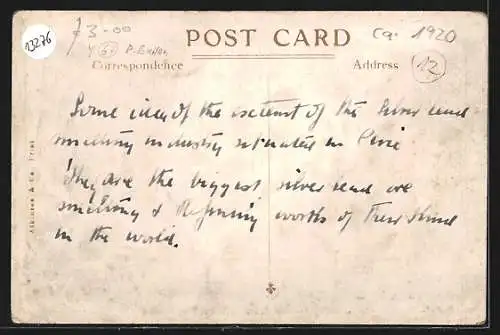 13276
£ 3-00
ca. 1920
POST CARD
Correspondence
Address
12
Some idea of the extent of the silver lead
smelting industry situated in Pirie
They are the biggest silver lead ore
smelting & Refining works of their kind
in the world.
Atkinson & Co. Print